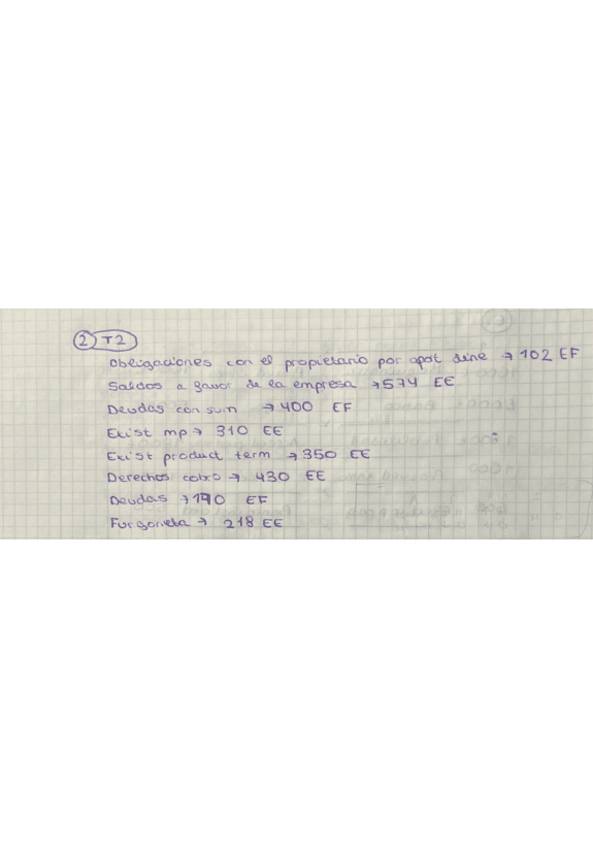 2 T2
Obligaciones con el propietario por apot dine → 102 EF
Saldos a favor de la empresa → 574 EE
Deudas con sum → 400 EF
Exist mp → 310 EE
Exist product term → 350 EE
Derechos cobro → 430 EE
Deudas → 190 EF
Furgoneta → 218 EE